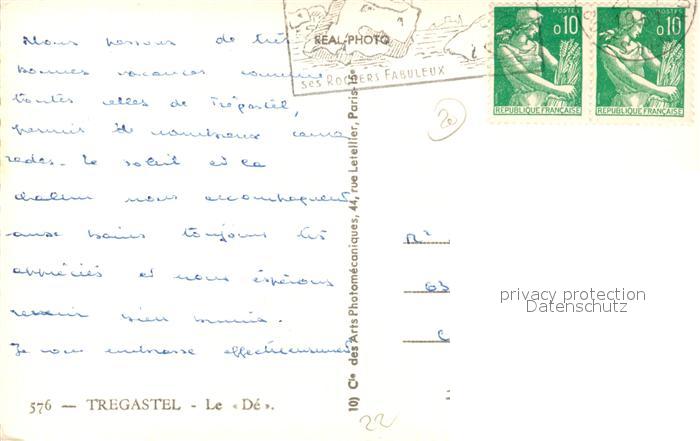 Nous passons de très
bonnes vacances comme
toutes celles de Trégastel,
parmi de nombreux cama
rades. Le soleil et la
chaleur nous accompagnent
aussi bains toujours très
appréciés et nous espérons
revenir bien bronzés.
Je vous embrasse affectueusement
576 — TREGASTEL - Le « Dé ».
REAL-PHOTO
ses ROCHERS FABULEUX
10) Cie des Arts Photomécaniques, 44, rue Letellier, Paris-15e
POSTES
0,10
REPUBLIQUE FRANÇAISE
POSTES
0,10
REPUBLIQUE FRANÇAISE
20
63
privacy protection
Datenschutz
22